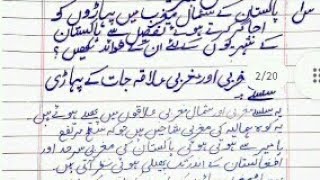 سوال پاکستان کے شمال مغرب میں پہاڑوں کو
اجاگر کرتے ہوئے تفصیل سے پاکستان
کے شہریوں کے لئے ان کے فوائد لکھیں؟
2/20
غربی اور مغربی علاقہ جات کے پہاڑی
سلسلے
یہ سلسلے مغربی اور شمال مغربی علاقوں میں پھیلے ہوئے ہیں۔
یہ کوہ ہمالیہ کی مغربی شاخیں ہیں جو کہ سطح مرتفع
پامیر سے ہوتی ہوئی پاکستان کی مغربی سرحد اور
افغانستان کے اندر تک پھیلی ہوئی نظر آتی ہیں۔